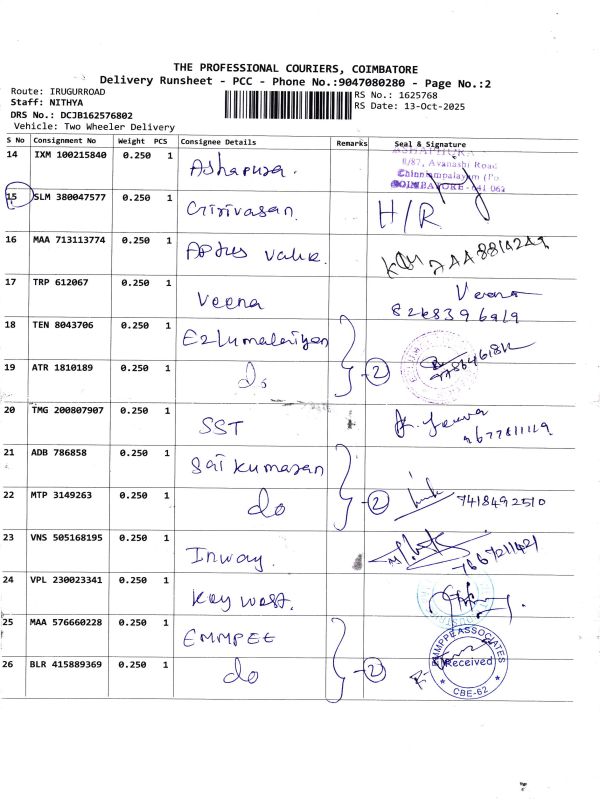 THE PROFESSIONAL COURIERS, COIMBATORE
Delivery Runsheet - PCC - Phone No.:9047080280 - Page No.:2
Route: IRUGURROAD
Staff: NITHYA
DRS No.: DCJB162576802
Vehicle: Two Wheeler Delivery
RS No.: 1625768
RS Date: 13-Oct-2025
S No Consignment No Weight PCS Consignee Details Remarks Seal & Signature
14 IXM 100215840 0.250 1 Ashapura.
8/87, Avanashi Road
Chinniampalayam (Po
COIMBATORE - 641 062
15 SLM 380047577 0.250 1 Girivasan. H/R
16 MAA 713113774 0.250 1 Aptus value.
17 TRP 612067 0.250 1 Veena Veena
18 TEN 8043706 0.250 1 Ezhumalaiyan
19 ATR 1810189 0.250 1 do 2
20 TMG 200807907 0.250 1 SST
9677811119
21 ADB 786858 0.250 1 Sai kumaran
22 MTP 3149263 0.250 1 do 2 7418492510
23 VNS 505168195 0.250 1 Inway. 7667211421
24 VPL 230023341 0.250 1 Key west.
25 MAA 576660228 0.250 1 EMMPEE
26 BLR 415889369 0.250 1 do 2
EMMPPE ASSOCIATES
Received
CBE-62